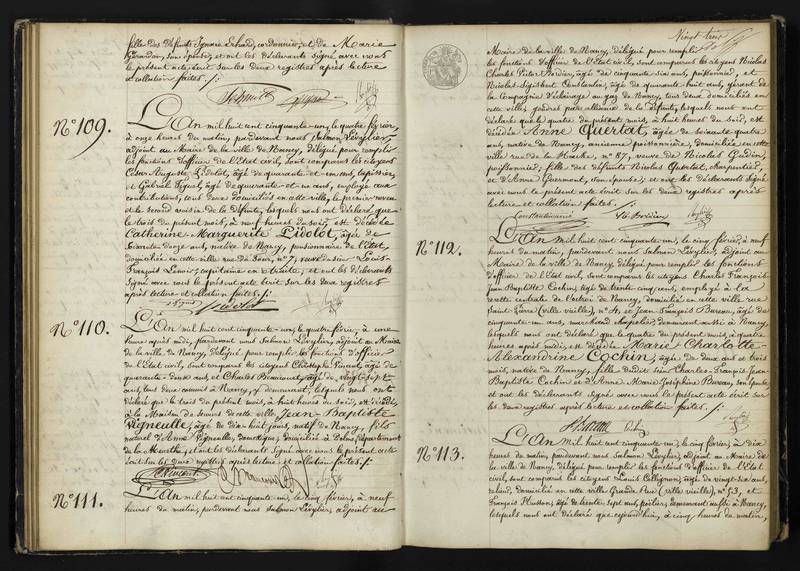 filles des défunts Ignace Erhard, cordonnier, et de Marie
son épouse, et ont les déclarants signé avec nous
le présent acte écrit sur les deux registres après lecture
et collation faites. /:
Schmitt
N° 109.
L'An mil huit cent cinquante-un, le quatre février,
à onze heures du matin, pardevant nous Salmon Lévylier,
adjoint au Maire de la ville de Nancy, délégué pour remplir
les fonctions d'officier de l'Etat civil, sont comparus les citoyens
César Auguste Lidolot, âgé de quarante-et-un ans, tapissier,
et Gabriel Piquel, âgé de quarante-et-un ans, employé aux
contributions, tous deux domiciliés en cette ville, le premier neveu
et le second voisin de la défunte, lesquels nous ont déclaré que
le trois du présent mois, à neuf heures du soir, est décédée
Catherine Marguerite Lidolot, âgée de
soixante-onze ans, native de Nancy, pensionnaire de l'Etat,
domiciliée en cette ville rue n° 7, veuve du sieur Louis-
François Lenoir, capitaine en retraite; et ont les déclarants
signé avec nous le présent acte écrit sur les deux registres
après lecture et collation faites. /:
Lidolot
N° 110.
L'An mil huit cent cinquante-un, le quatre février, à une
heure après midi, pardevant nous Salmon Lévylier, adjoint au Maire
de la ville de Nancy, délégué pour remplir les fonctions d'officier
de l'Etat civil, sont comparus les citoyens Christophe Vincent, âgé de
quarante-deux ans, et Charles Beaucourt, âgé de vingt-sept
ans, tous deux à Nancy, y demeurant, lesquels nous ont
déclaré que le trois du présent mois, à huit heures du soir, est décédé
à la Maison de secours de cette ville, Jean-Baptiste
Vigneulle, âgé de dix-huit jours, natif de Nancy, fils
naturel d'Anne Vigneulle, domestique, domiciliée à département
de la Meurthe, et ont les déclarants signé avec nous le présent acte
écrit sur les deux registres après lecture et collation faites. /:
Vincent
N° 111.
L'An mil huit cent cinquante-un, le cinq février, à neuf
heures du matin, pardevant nous Salmon Lévylier, adjoint au
Vingt trois
Maire de la ville de Nancy, délégué pour remplir
les fonctions d'officier de l'état civil, sont comparus les citoyens Nicolas
Charles Victor Bordier, âgé de cinquante-six ans, poissonnier, et
Nicolas Sigisbert Constantin, âgé de quarante-huit ans, gérant de
la Compagnie d'éclairage au gaz de Nancy, tous deux domiciliés en
cette ville, gendres par alliance de la défunte, lesquels nous ont
déclaré que le quatre du présent mois, à huit heures du soir, est
décédée Anne Quertat, âgée de soixante quatre
ans, native de Nancy, ancienne poissonnière, domiciliée en cette
ville rue de la Hache, n° 87, veuve de Nicolas Gudin,
poissonnier; fille des défunts Nicolas Quertat, charpentier,
et d'Anne son épouse; et ont les déclarants signé
avec nous le présent acte écrit sur les deux registres après
lecture et collation faites. /:
Constantin
Bordier
N° 112.
L'An mil huit cent cinquante-un, le cinq février, à neuf
heures du matin, pardevant nous Salmon Lévylier, adjoint au
Maire de la ville de Nancy, délégué pour remplir les fonctions
d'officier de l'état civil, sont comparus les citoyens Charles François
Jean Baptiste Cochin, âgé de trente-cinq ans, employé à la
recette centrale de l'octroi de Nancy, domicilié en cette ville rue
Saint-Pierre (ville vieille), n° 4, et Jean François Bureau, âgé de
cinquante-un ans, marchand chapelier, demeurant aussi à Nancy,
lesquels nous ont déclaré que le quatre du présent mois, à quatre
heures après midi, est décédée Marie Charlotte-
Alexandrine Cochin, âgée de deux ans et trois
mois, native de Nancy, fille dudit sieur Charles-François-Jean-
Baptiste Cochin et d'Anne Marie Joséphine Bureau, son épouse,
et ont les déclarants signé avec nous le présent acte écrit sur
les deux registres après lecture et collation faites. /:
N° 113.
L'An mil huit cent cinquante-un, le cinq février, à dix
heures du matin, pardevant nous Salmon Lévylier, adjoint au Maire de
la ville de Nancy, délégué pour remplir les fonctions d'officier de l'Etat
civil, sont comparus les citoyens Louis Collignon, âgé de vingt-six ans,
domicilié en cette ville Grande Rue (ville vieille), n° 53, et
François Husson, âgé de trente-sept ans, demeurant aussi à Nancy,
lesquels nous ont déclaré que cejourd'hui, à cinq heures du matin,